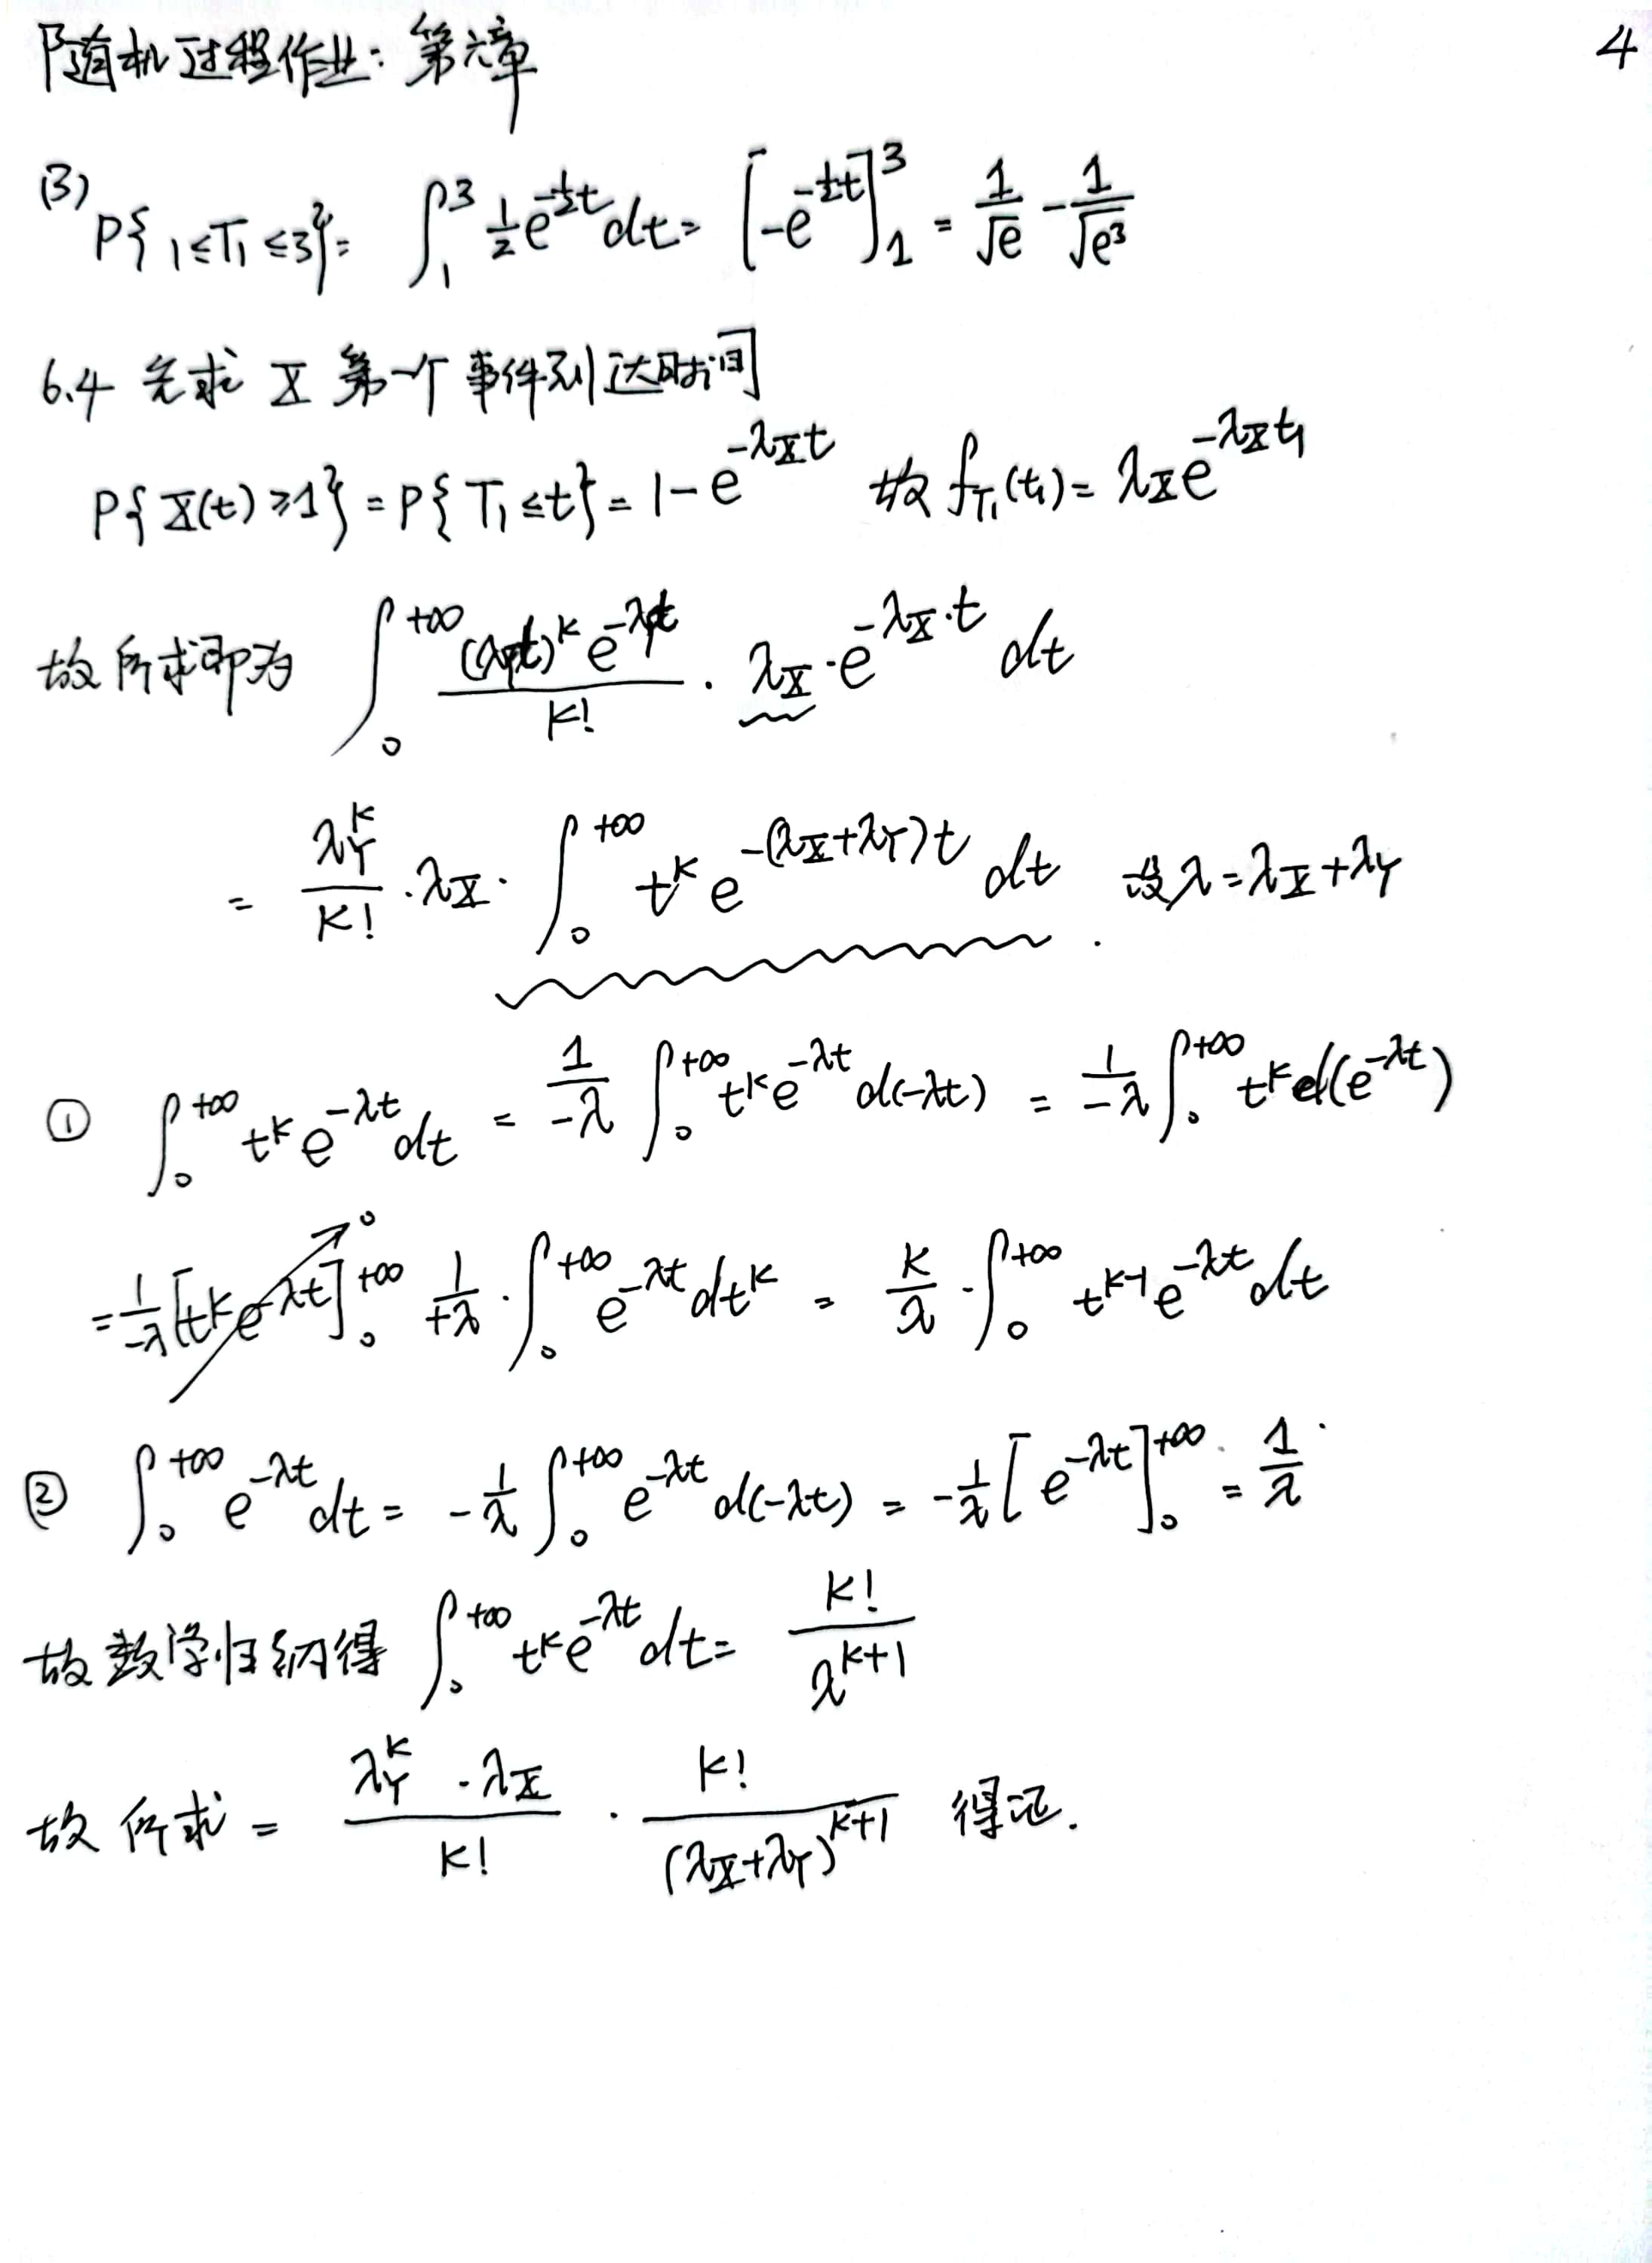 随机过程作业：第六章 4
(3) P{1≤T₁≤3}= ∫₁³ ½e^{-½t}dt= [-e^{-½t}]₁³ = 1/√e - 1/√e³
6.4 先求 X 第一个事件到达时间
P{X(t)≥1}=P{T₁≤t}=1-e^{-λ_X t} 故 f_{T₁}(t₁)=λ_X e^{-λ_X t₁}
故所求即为 ∫₀^{+∞} (λ_Y t)^k e^{-λ_Y t}/k! · λ_X·e^{-λ_X·t} dt
= λ_Y^k/k! ·λ_X· ∫₀^{+∞} t^k e^{-(λ_X+λ_Y)t} dt . 设λ=λ_X+λ_Y
① ∫₀^{+∞} t^k e^{-λt}dt = 1/-λ ∫₀^{+∞} t^k e^{-λt} d(-λt) = 1/-λ ∫₀^{+∞} t^k d(e^{-λt})
= 1/-λ [t^k e^{-λt}]₀^{+∞} 0 1/+λ · ∫₀^{+∞} e^{-λt} dt^k = k/λ · ∫₀^{+∞} t^{k-1} e^{-λt} dt
② ∫₀^{+∞} e^{-λt}dt = -1/λ ∫₀^{+∞} e^{-λt} d(-λt) = -1/λ [e^{-λt}]₀^{+∞} = 1/λ
故数学归纳得 ∫₀^{+∞} t^k e^{-λt} dt= k!/λ^{k+1}
故所求 = λ_Y^k ·λ_X/k! · k!/(λ_X+λ_Y)^{k+1} 得证.